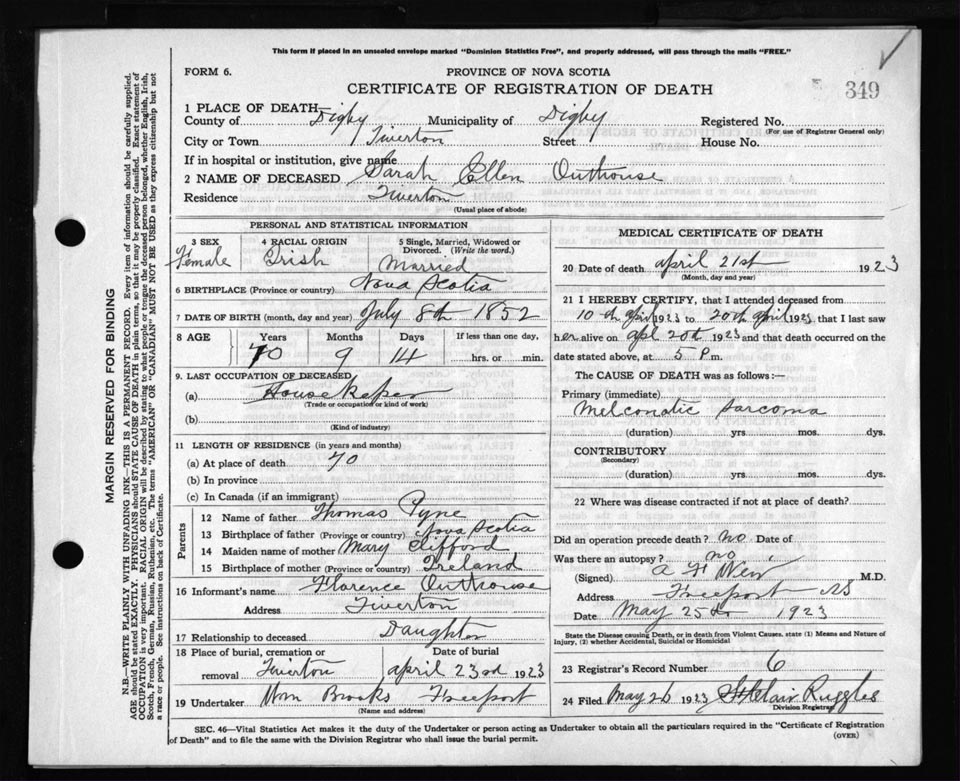 This form if placed in an unsealed envelope marked "Dominion Statistics Free", and properly addressed, will pass through the mails "FREE."
FORM 6.
PROVINCE OF NOVA SCOTIA
CERTIFICATE OF REGISTRATION OF DEATH
349
1 PLACE OF DEATH—
County of Digby Municipality of Digby Registered No.
(For use of Registrar General only)
City or Town Tiverton Street House No.
If in hospital or institution, give name
2 NAME OF DECEASED Sarah Ellen Outhouse
Residence Tiverton
(Usual place of abode)
PERSONAL AND STATISTICAL INFORMATION
3 SEX 4 RACIAL ORIGIN 5 Single, Married, Widowed or Divorced. (Write the word.)
Female Irish Married
6 BIRTHPLACE (Province or country) Nova Scotia
7 DATE OF BIRTH (month, day and year) July 8th 1852
8 AGE Years Months Days If less than one day,
70 9 14 hrs. or min.
9. LAST OCCUPATION OF DECEASED
(a) Housekeper
(Trade or occupation or kind of work)
(b)
(Kind of industry)
11 LENGTH OF RESIDENCE (in years and months)
(a) At place of death 70
(b) In province
(c) In Canada (if an immigrant)
Parents
12 Name of father Thomas Pyne
13 Birthplace of father (Province or country) Nova Scotia
14 Maiden name of mother Mary Clifford
15 Birthplace of mother (Province or country) Ireland
16 Informant's name Florence Outhouse
Address Tiverton
17 Relationship to deceased Daughter
18 Place of burial, cremation or removal Tiverton
Date of burial april 23rd 1923
19 Undertaker Wm Brooks Freeport
(Name and address)
MEDICAL CERTIFICATE OF DEATH
20 Date of death april 21st 1923
(Month, day and year)
21 I HEREBY CERTIFY, that I attended deceased from
10th april 1923 to 20th april 1923 that I last saw
her alive on apl 20th 1923 and that death occurred on the
date stated above, at 5 P m.
The CAUSE OF DEATH was as follows:—
Primary (immediate)
Melconatic Sarcoma
(duration) yrs mos. dys.
CONTRIBUTORY
(Secondary)
(duration) yrs. mos. dys.
22 Where was disease contracted if not at place of death?
Did an operation precede death? no Date of
Was there an autopsy? no
(Signed) A F Weir M.D.
Address Freeport NS
Date May 25th 1923
State the Disease causing Death, or in death from Violent Causes, state (1) Means and Nature of
Injury, (2) whether Accidental, Suicidal or Homicidal
23 Registrar's Record Number 6
24 Filed may 26 1923 St Clair Ruggles
Division Registrar
SEC. 46—Vital Statistics Act makes it the duty of the Undertaker or person acting as Undertaker to obtain all the particulars required in the "Certificate of Registration
of Death" and to file the same with the Division Registrar who shall issue the burial permit.
(OVER)
MARGIN RESERVED FOR BINDING
N.B.—WRITE PLAINLY WITH UNFADING INK—THIS IS A PERMANENT RECORD. Every item of information should be carefully supplied.
AGE should be stated EXACTLY. PHYSICIANS should STATE CAUSE OF DEATH in plain terms, so that it may be properly classified. Exact statement of
OCCUPATION is very important. RACIAL ORIGIN will be described by stating to what people or tongue the deceased person belonged, whether English, Irish,
Scotch, French, German, Russian, Ruthenian, etc. The terms "AMERICAN" OR "CANADIAN" MUST NOT BE USED as they express citizenship but not
a race or people. See instructions on back of Certificate.